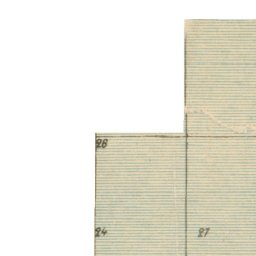 26
24 27